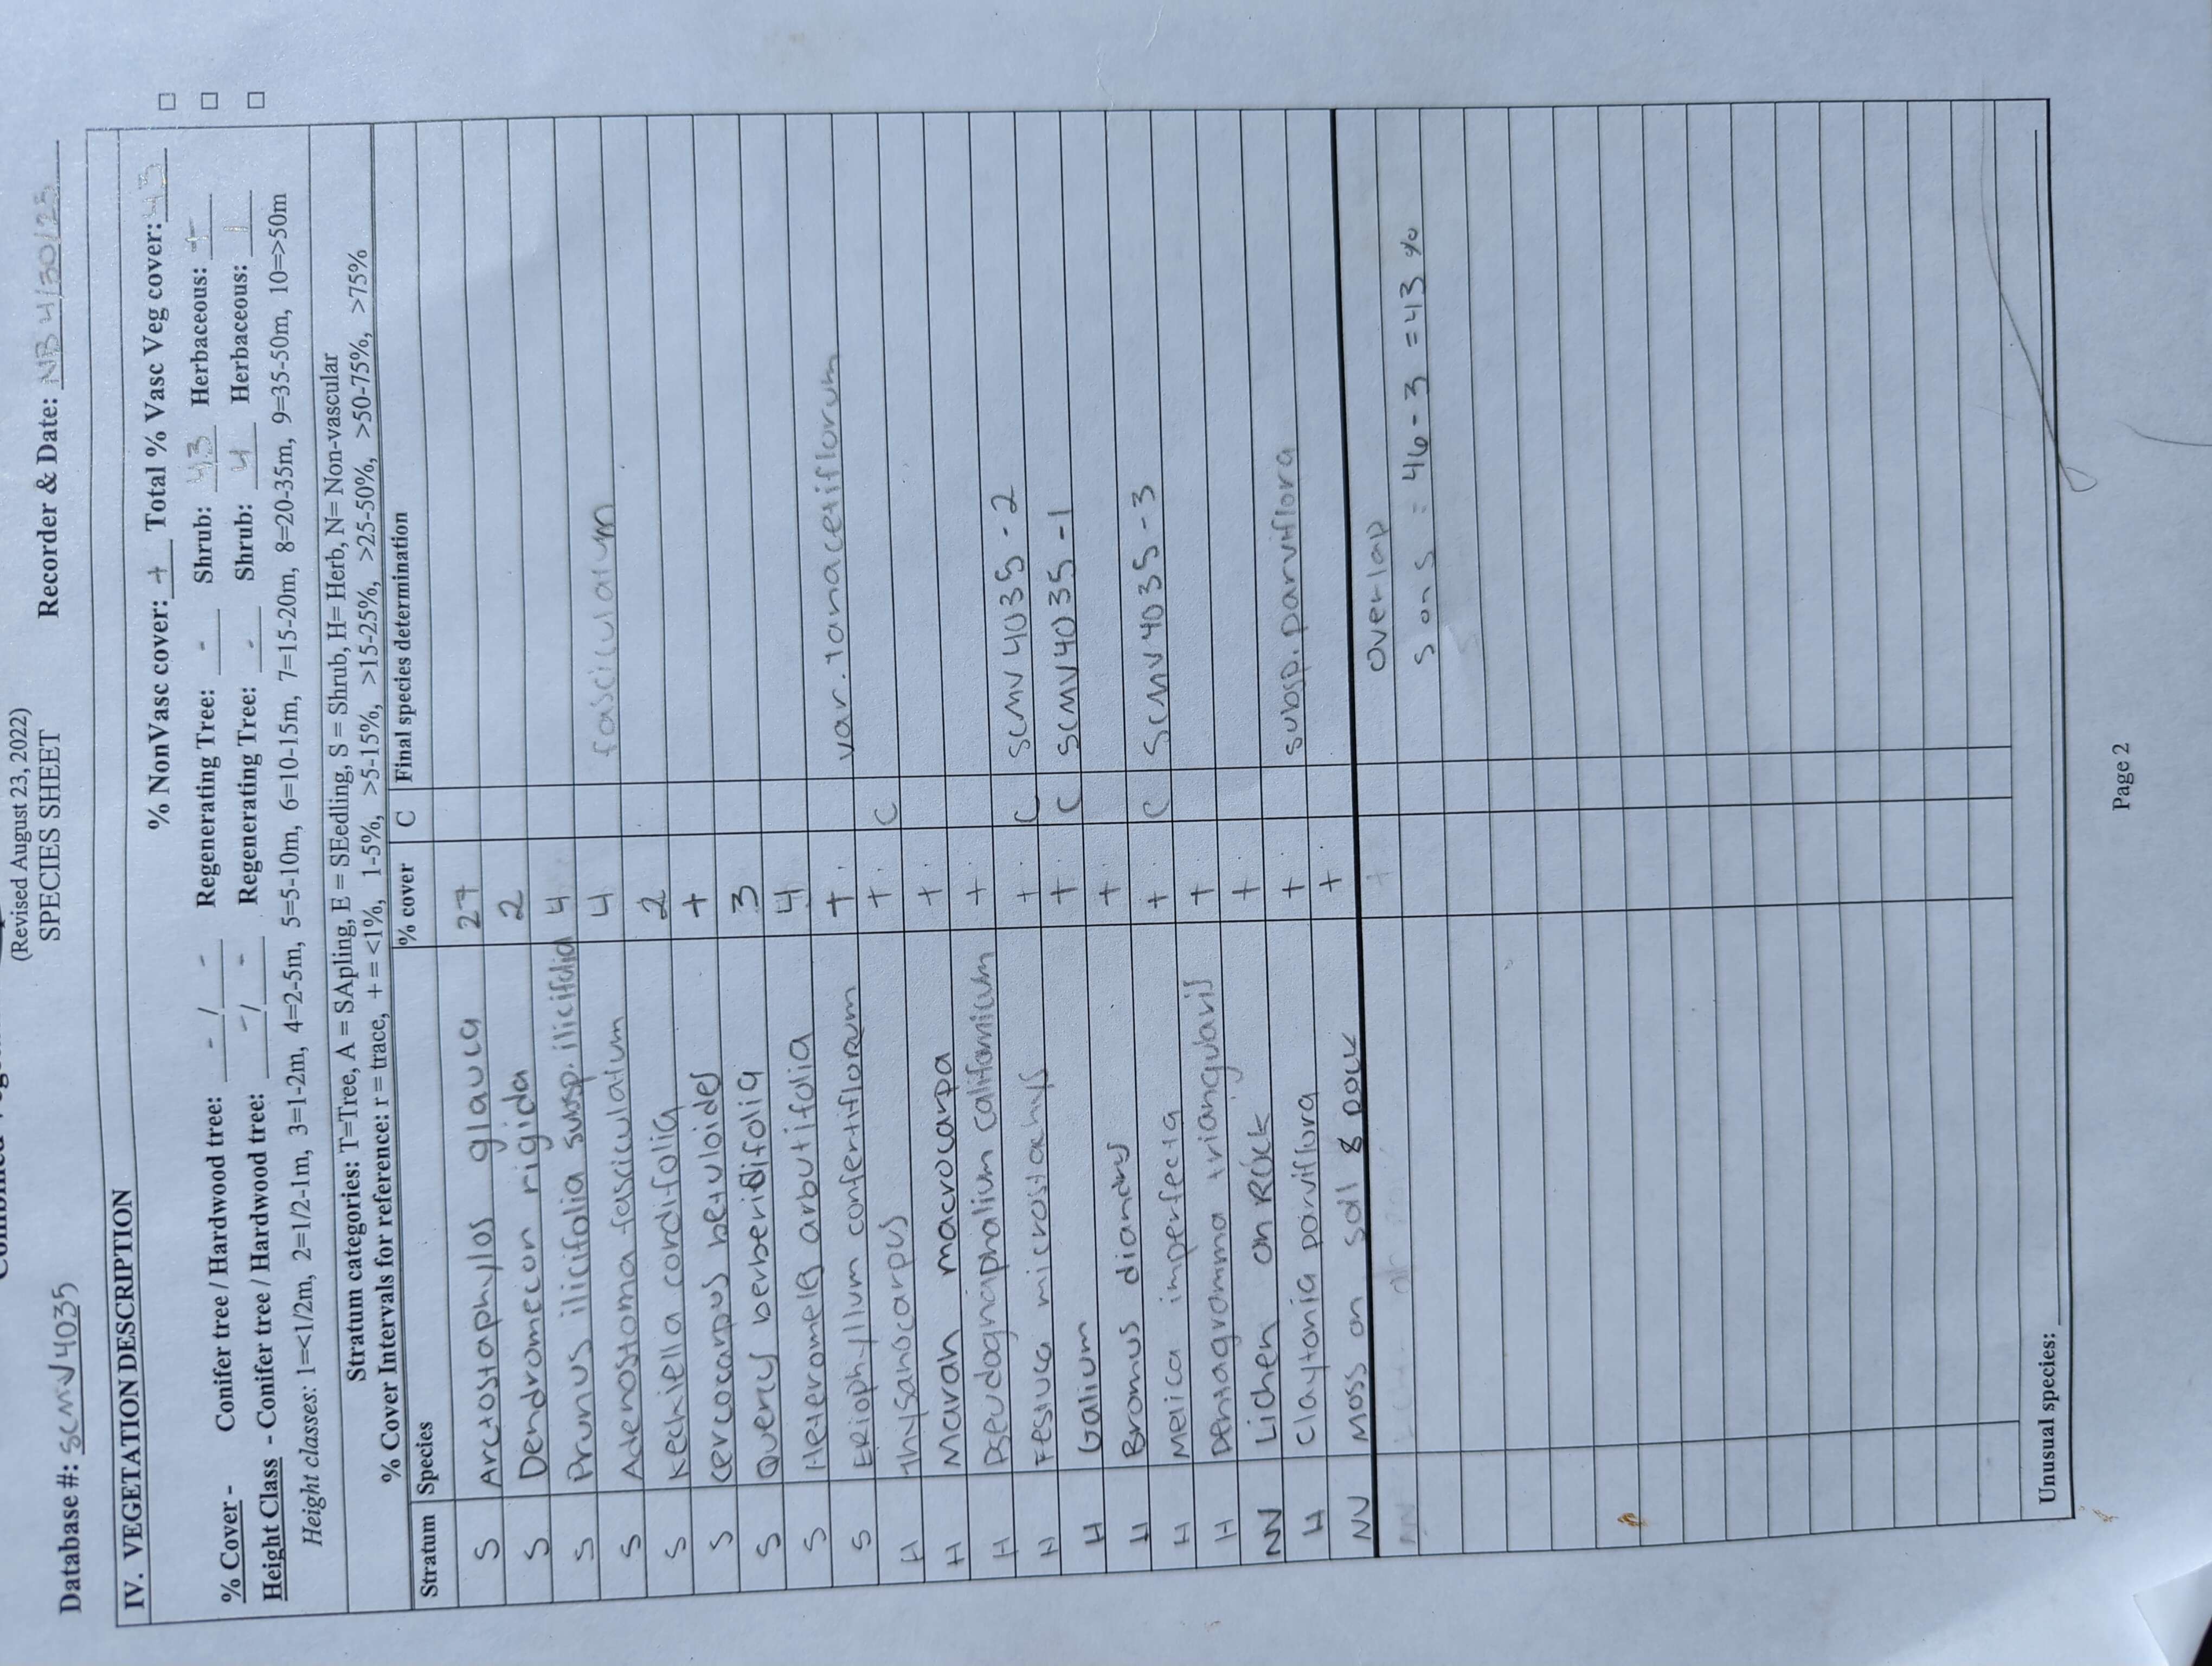 (Revised August 23, 2022)
SPECIES SHEET
Database #: SCMV4035 Recorder & Date: NB 4/30/25
IV. VEGETATION DESCRIPTION
% NonVasc cover: + Total % Vasc Veg cover: 43
% Cover - Conifer tree / Hardwood tree: - / - Regenerating Tree: - Shrub: 43 Herbaceous: +
Height Class - Conifer tree / Hardwood tree: - / - Regenerating Tree: - Shrub: 4 Herbaceous: 1
Height classes: 1=<1/2m, 2=1/2-1m, 3=1-2m, 4=2-5m, 5=5-10m, 6=10-15m, 7=15-20m, 8=20-35m, 9=35-50m, 10=>50m
Stratum categories: T=Tree, A = SApling, E = SEedling, S = Shrub, H= Herb, N= Non-vascular
% Cover Intervals for reference: r = trace, + = <1%, 1-5%, >5-15%, >15-25%, >25-50%, >50-75%, >75%
Stratum Species % cover C Final species determination
S Arctostaphylos glauca 27
S Dendromecon rigida 2
S Prunus ilicifolia subsp. ilicifolia 4
S Adenostoma fasciculatum 4 fasciculatum
S Keckiella cordifolia 2
S Cercocarpus betuloides +
S Quercus berberidifolia 3
S Heteromeles arbutifolia 4
S Eriophyllum confertiflorum + var. tanacetiflorum
H Thysanocarpus + C
H Marah macrocarpa +
H Pseudognaphalium californicum +
H Festuca microstachys + C SCMV4035-2
H Galium + C SCMV4035-1
H Bromus diandrus +
H Melica imperfecta + C SCMV4035-3
H Pentagramma triangularis +
NV Lichen on Rock +
H Claytonia parviflora + subsp. parviflora
NV Moss on soil & rock +
Overlap
S on S : 46-3 = 43 %
Unusual species:
Page 2